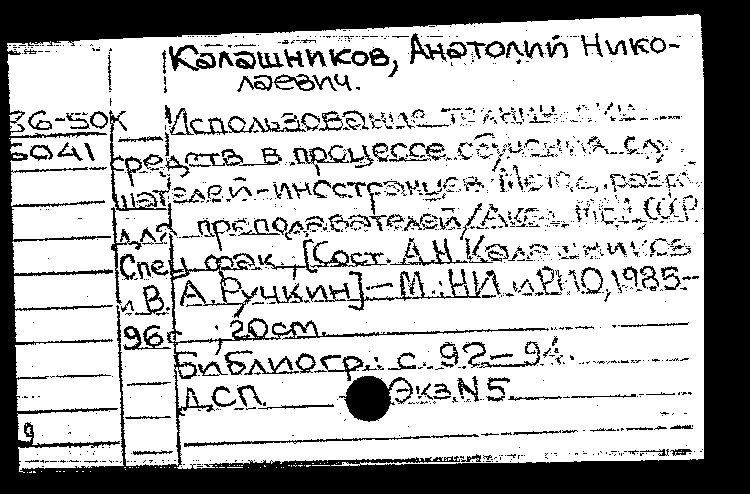 Калашников, Анатолий Нико-
лаевич.
86-50К Использование технических
5041 средств в процессе обучения слу-
шателей-иностранцев Метод. разраб.
для преподавателей/Акад. МВД СССР
Спец фак, [Сост. А.Н Калашников
и В. А. Ручкин]-М.:НИ и РИО, 1985-
96с ; 20см.
Библиогр.: с. 92-94.
Д.СП. Экз. N 5.
9